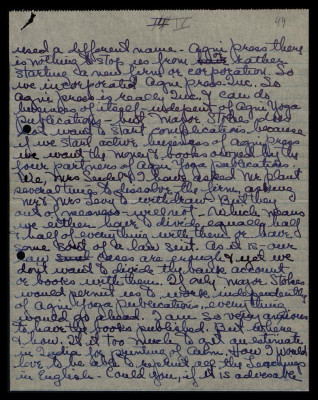 III IV 49
used a different name - Agni Press there
is nothing to stop us from rather
starting a new firm or corporation. So
we incorporated Agni Press Inc. So
Agni Press is really Inc. & can do
business of itself - independent of Agni Yoga
Publications - but Major Stokes does
not want to start complications because
if we start active business of Agni Press
we want the money & books owned by the
four partners of Agni Yoga Publications.
We, Mrs & I have asked Mr Plant
several times to dissolve the firm, asking
Mr & Mrs Levy to withdraw. But they
out of meanness - will not. Which means
we either have to divide equally half
& half of everything with them or have
some sort of a law suit. As it is - our
law cases are enough & yet we
don't want to divide the bank account
or books with them. If only Major Stokes
would permit us to work independently
of Agni Yoga Publications, everything
would go ahead. I am so very anxious
to have the books published. But where
& how. Is it too much to get an estimate
in India for printing of them. How I would
love to be able to reprint all the Teachings
in English - Could you, if it is advisable